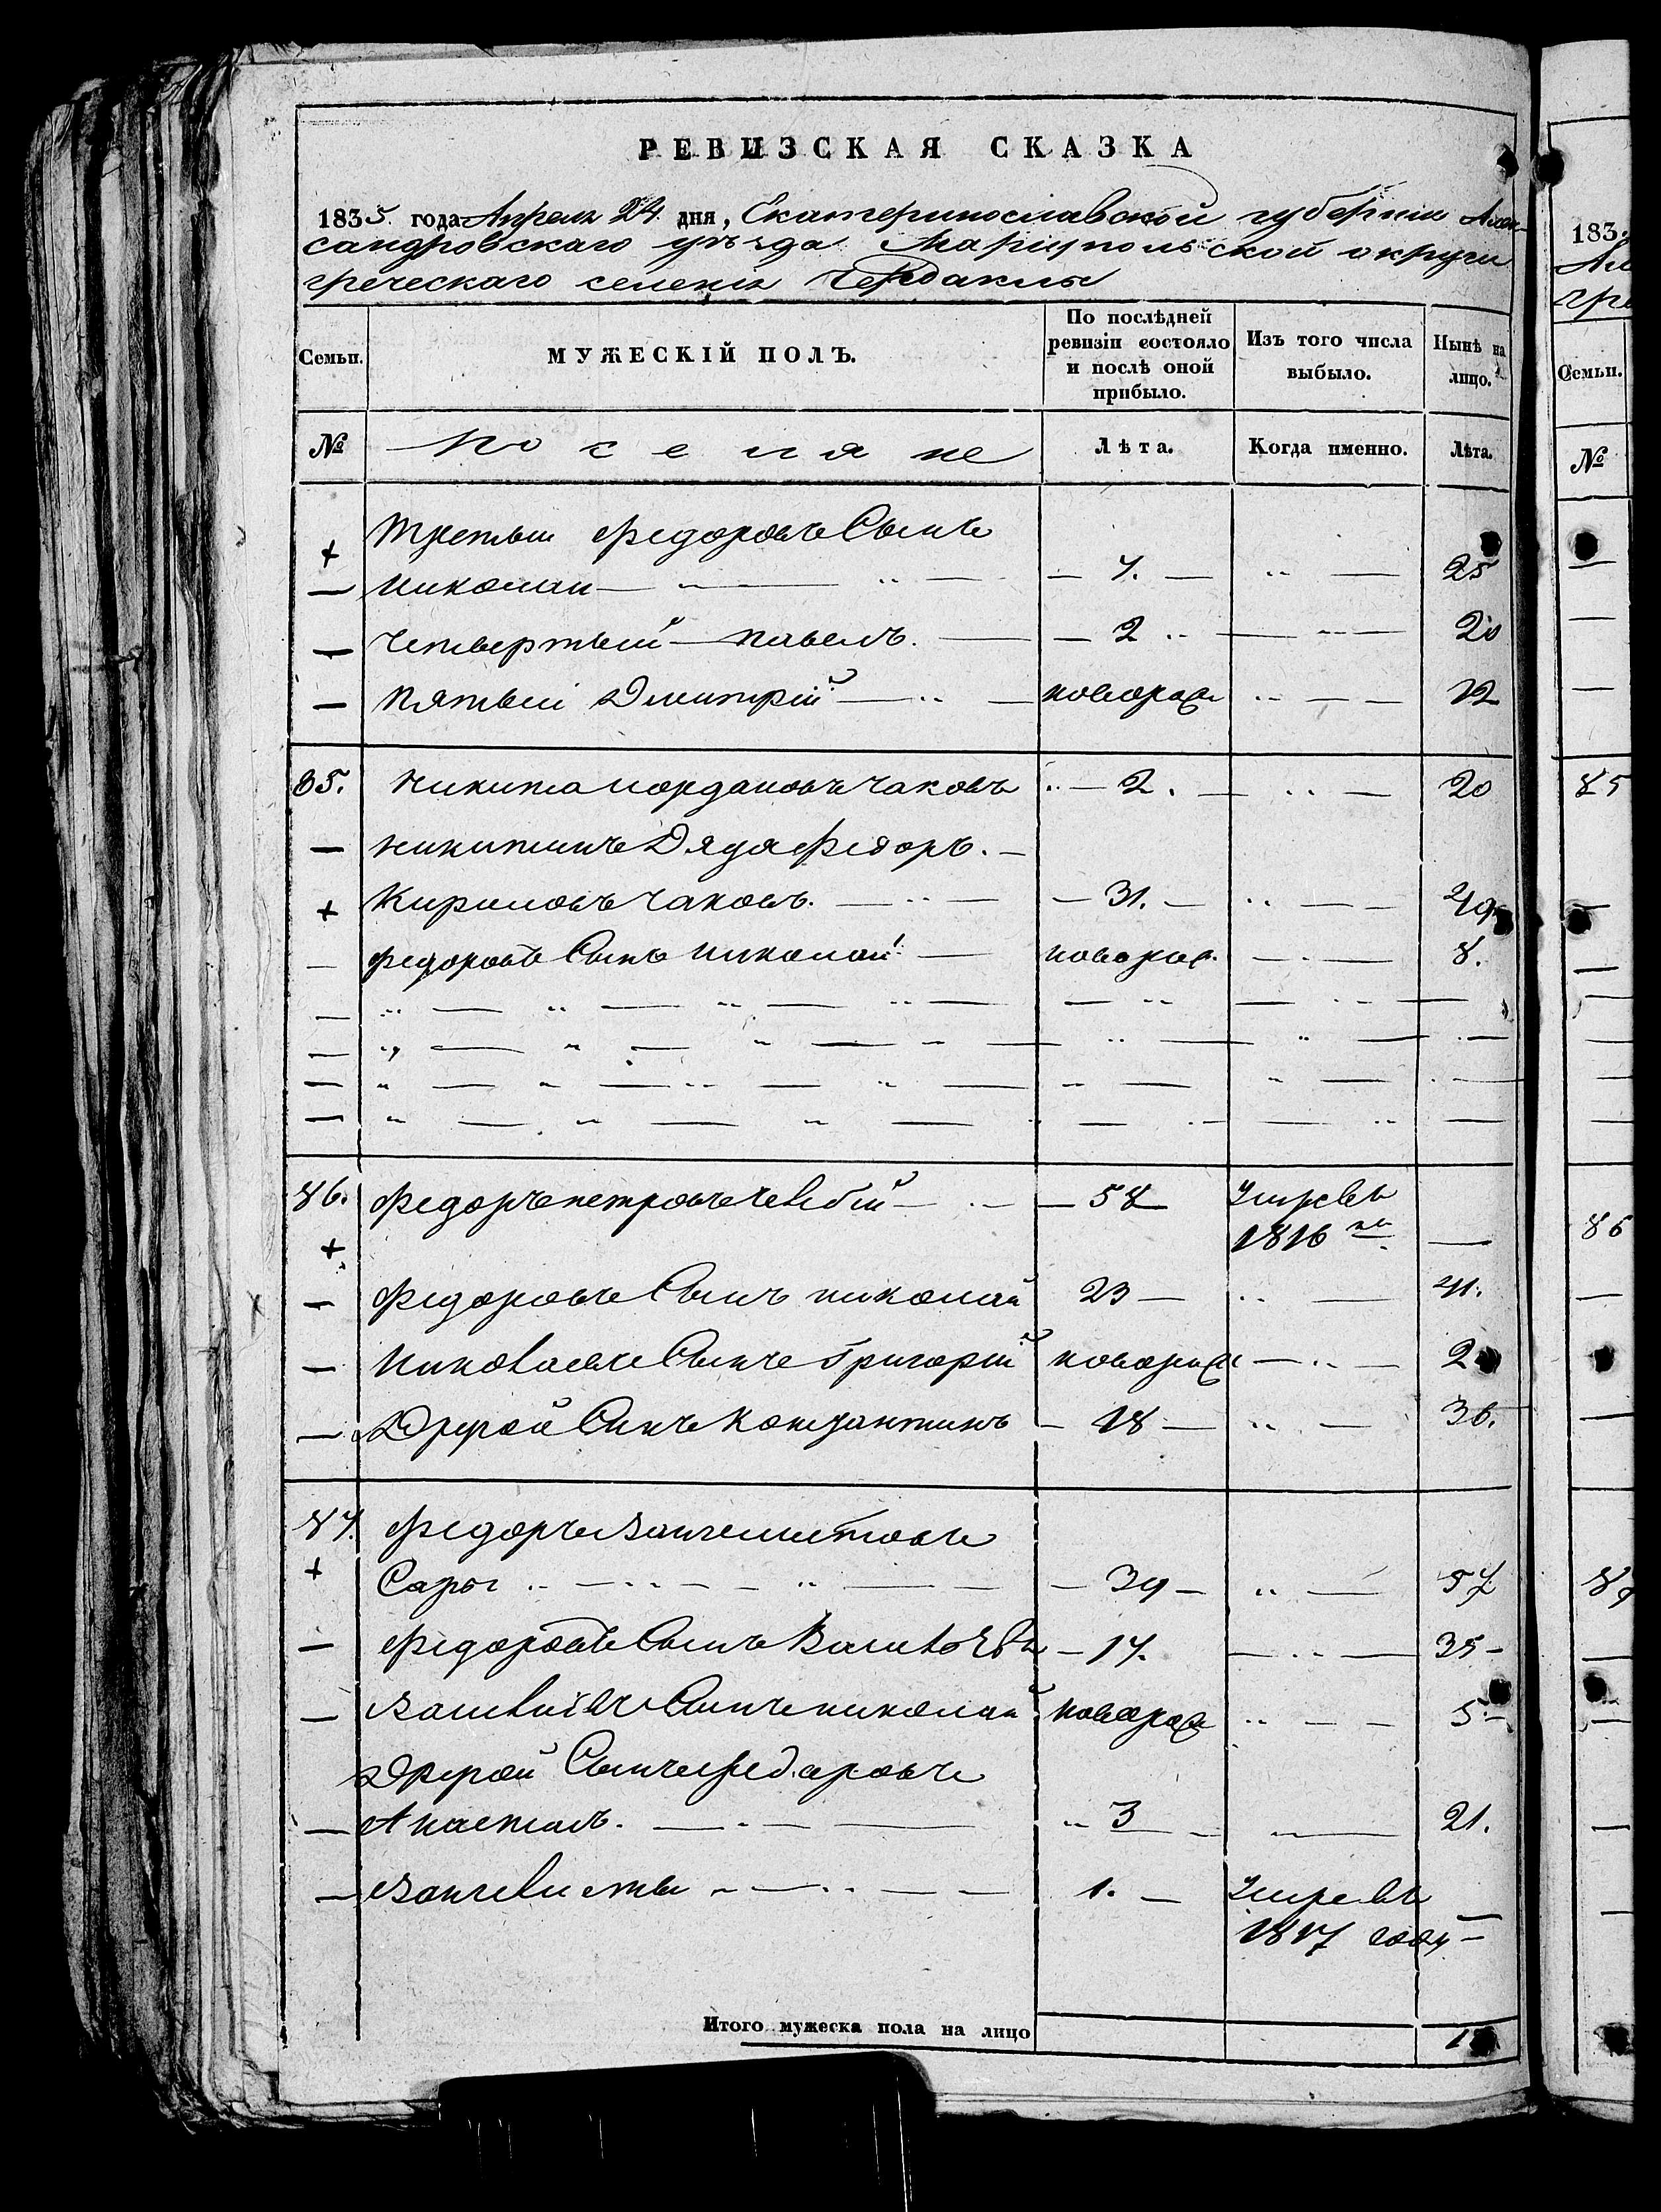 РЕВИЗСКАЯ СКАЗКА
1835 года Апреля 24 дня, Екатеринославской губернии Алек-
сандровскаго уѣзда Мариупольской округи
греческаго селенія Чердаклы
Семьи.
МУЖЕСКІЙ ПОЛЪ.
По послѣдней ревизіи состояло и послѣ оной прибыло.
Изъ того числа выбыло.
Нынѣ на лицо.
№ поселяне Лѣта. Когда именно. Лѣта.
третьи Федоровъ Сынъ
+ Николаи — 7. — 25
четвертый — павелъ. — 2 — 20
пятыи Дмитрій — новорож — 12
85. Никита иордановъ Чаковъ — 2. — 20
никитинъ Дядя Федоръ.
+ Кириловъ Чаковъ. — 31. — 49
Федоровъ Сынъ николай — новорож. — 8.
86. Федоръ петровъ Челбій — 58 умре въ
+ 1816 —
Федоровъ Сынъ николай 23 — 41.
Николаевъ Сынъ Григорій новорож — 2
Другой Сынъ Констянтинъ — 18 — 36.
87. Федоръ
+ Сары — 39 — 57
Федоровъ Сынъ — 17. — 35
Сынъ николай новорож — 5
Другой Сынъ Федоровъ
Анастасъ. — 3 — 21.
1. — умре въ
1817 году
Итого мужеска пола на лицо
183
Семьи.
№
85
86
87